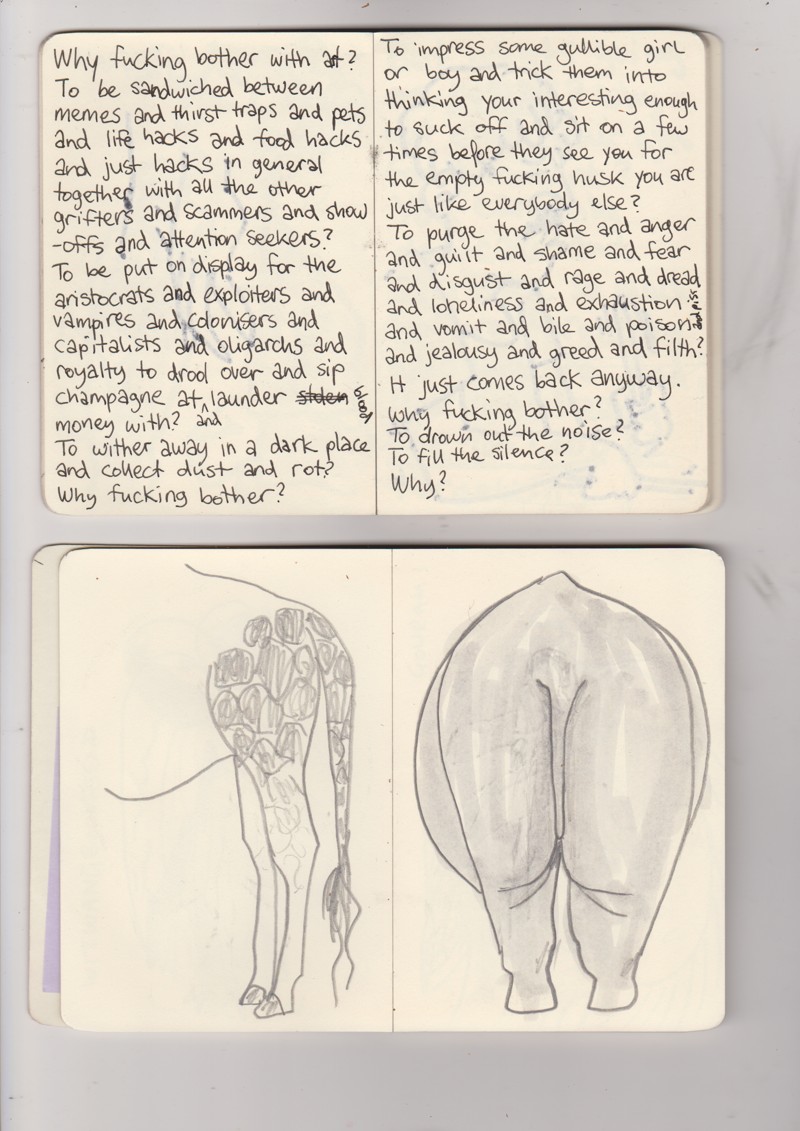 Why fucking bother with art?
To be sandwiched between
memes and thirst traps and pets
and life hacks and food hacks
and just hacks in general
together with all the other
grifters and scammers and show
-offs and attention seekers?
To be put on display for the
aristocrats and exploiters and
vampires and colonisers and
capitalists and oligarchs and
royalty to drool over and sip
champagne at and launder stolen bloody
money with?
To wither away in a dark place
and collect dust and rot?
Why fucking bother?
To impress some gullible girl
or boy and trick them into
thinking your interesting enough
to suck off and sit on a few
times before they see you for
the empty fucking husk you are
just like everybody else?
To purge the hate and anger
and guilt and shame and fear
and disgust and rage and dread
and loneliness and exhaustion
and vomit and bile and poison
and jealousy and greed and filth?
It just comes back anyway.
Why fucking bother?
To drown out the noise?
To fill the silence?
Why?